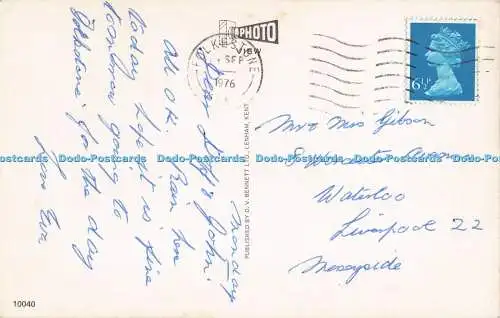 PHOTO
VIEW
FOLKESTONE
SEP
1976
6½P
Monday
Dear Jeff & John.
All O.K. Rain here
today hope it is fine
tomorrow going to
Folkstone for the day
Love Eva
Mr & Mrs Gibson
Worcester Avenue
Waterloo
Liverpool 22
Merseyside
PUBLISHED BY D. V. BENNETT LTD., LENHAM, KENT.
10040
Dodo-Postcards Dodo-Postcards Dodo-Postcards Dodo-Postcards Dodo-Postcards